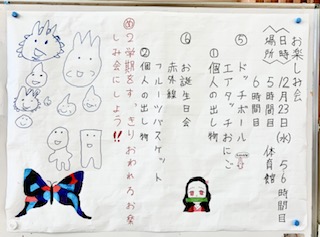 お楽しみ会
日時 12月23日(水) 5 6時間目
場所 5時間目 体育館
6時間目
⑤ ドッチボール
エアタッチおにご
①個人の出し物
⑥ お誕生日会
赤外線
フルーツバスケット
②個人の出し物
2学期をすっきりおわれるお楽
しみ会にしよう!!